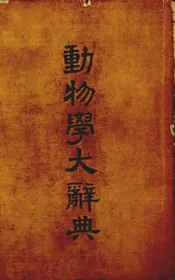 動物學大辭典